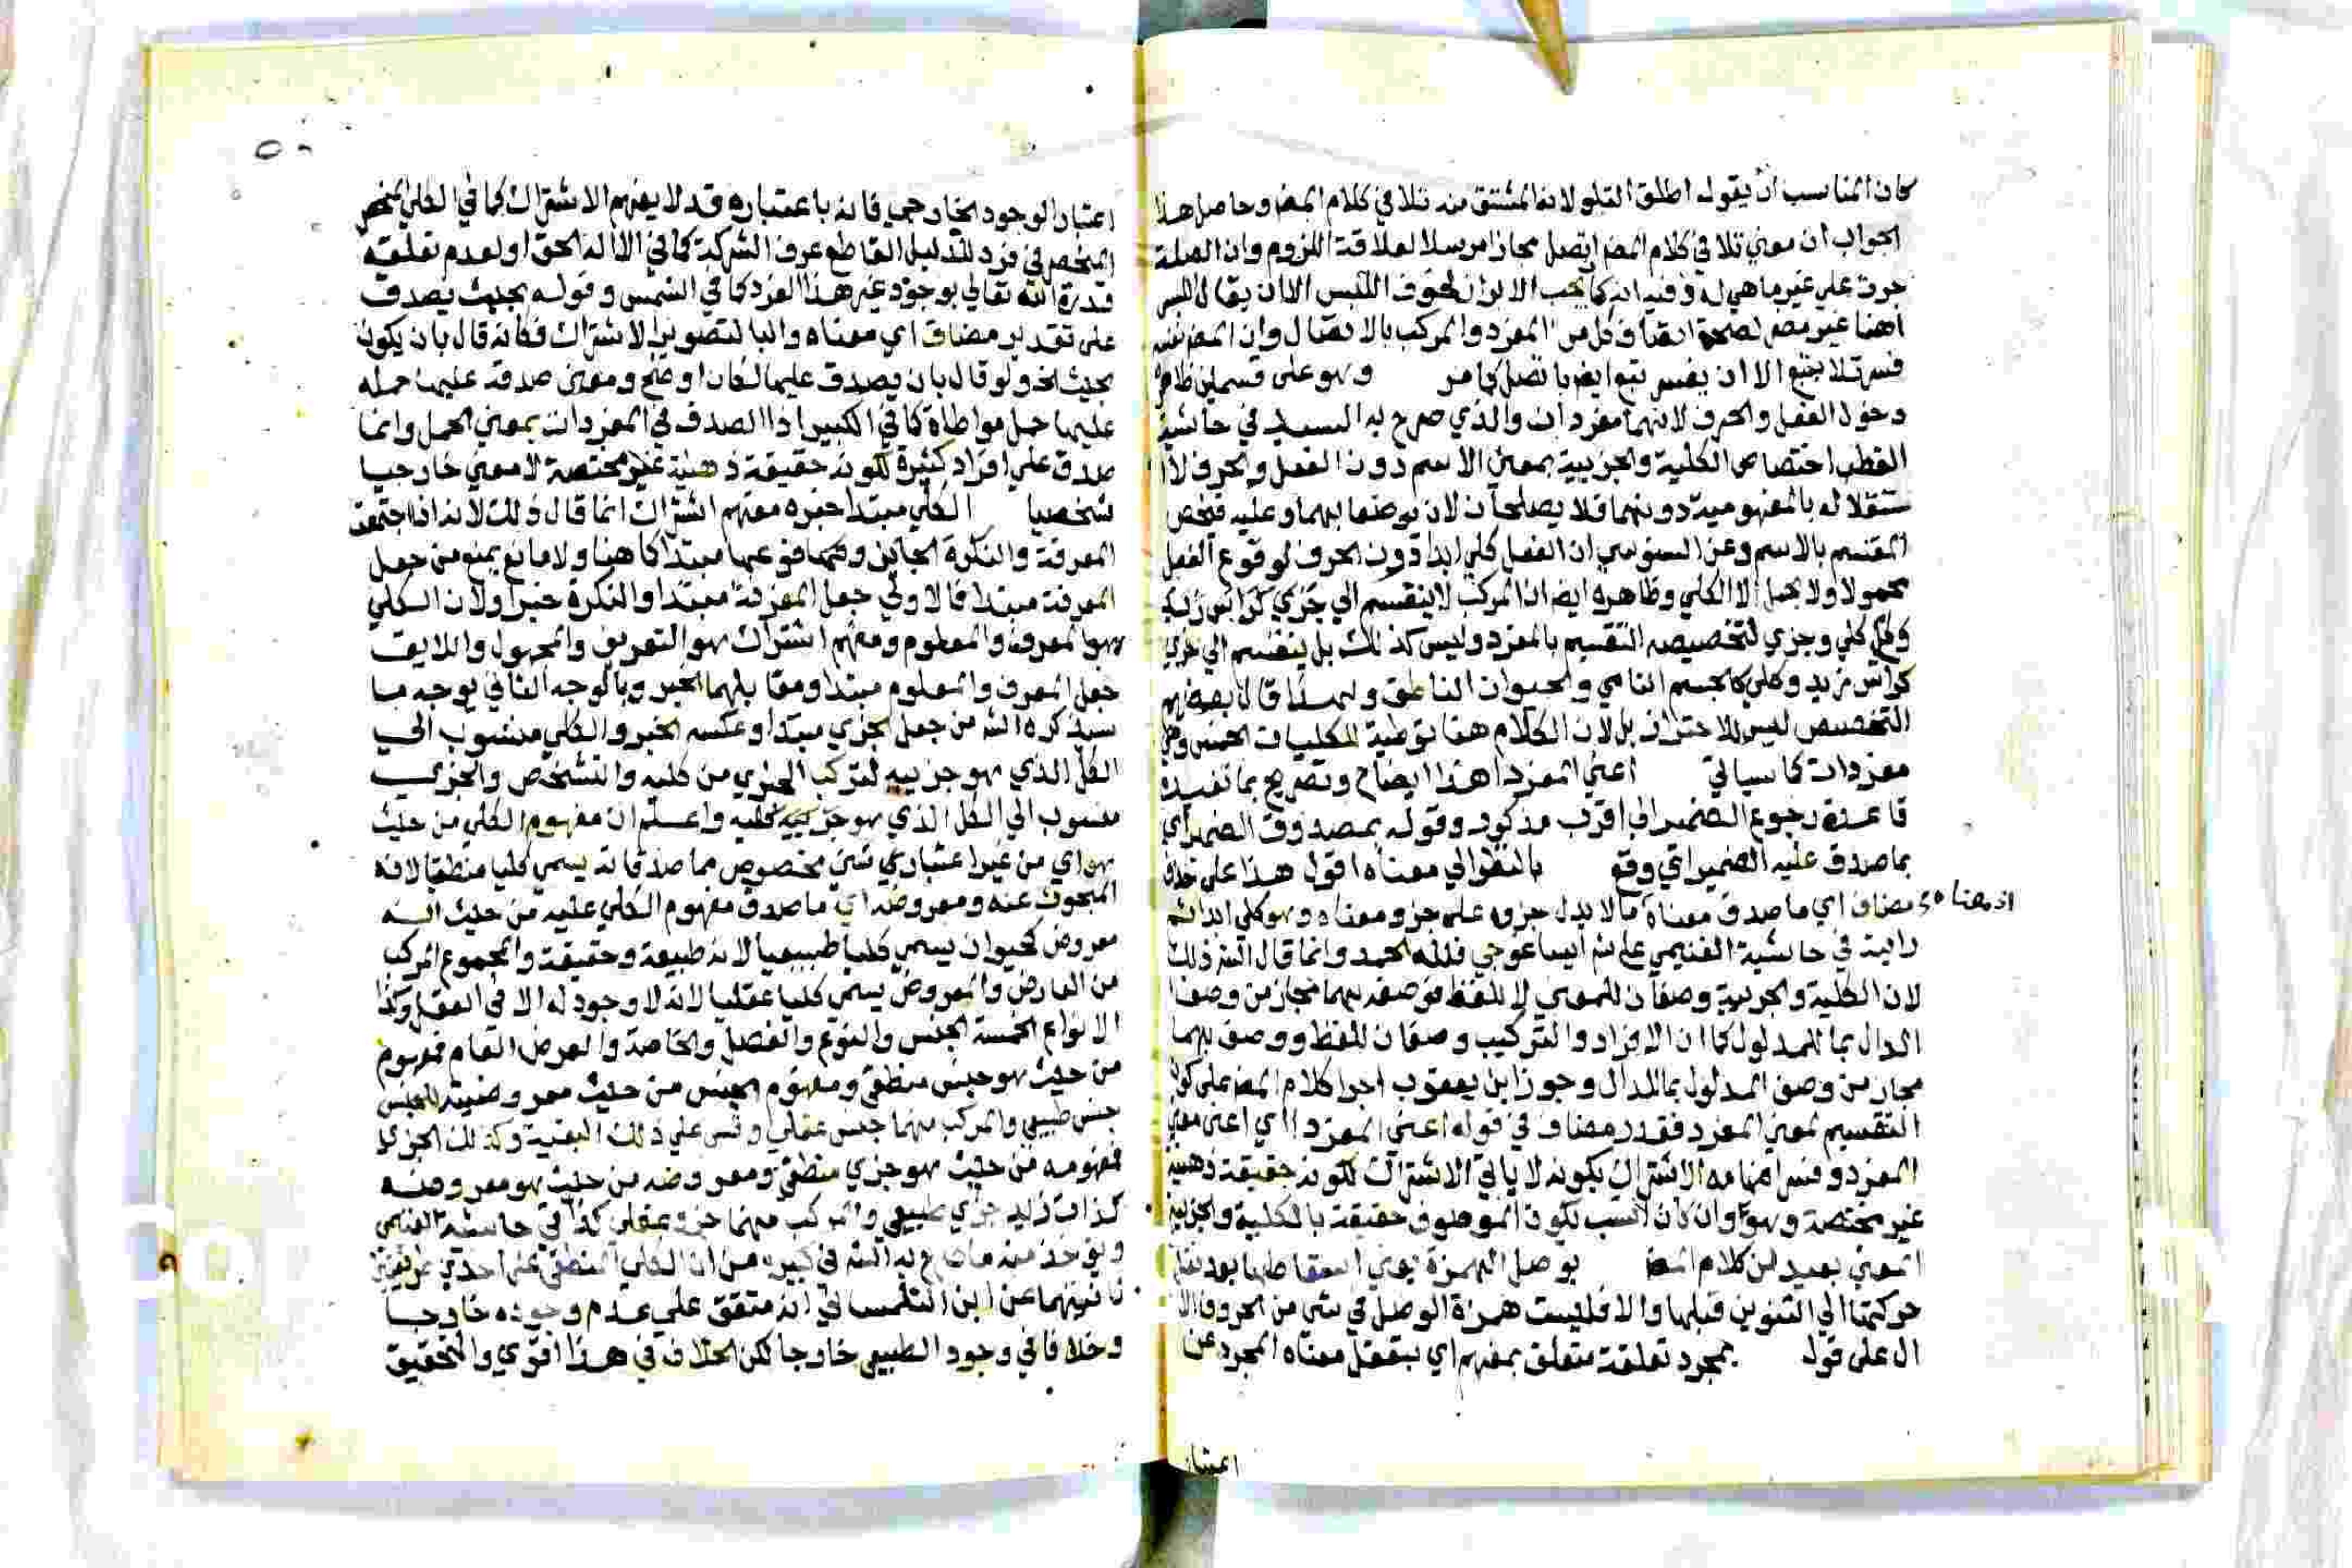 كان المناسب ان يقول اطلق التلو لانه المشتق منه تلا في كلام المصـ وحاصل هذا
الجواب ان معنى تلا في كلام المصـ اتصل مجازا مرسلا لعلاقة اللزوم وان الصلة
جرت على غير ما هي له وفيه انه كما يجب الابراز لخوف اللبس الا ان يقال اللبس
هنا غير مضر لصحة اتصاف كل من المفرد والمركب بالاتصال وان المصـ
فسر تلا بتبع الا ان يفسر تبع ايضا باتصل كما مر وهو على قسمين ظاهره
دخول الفعل والحرف لانهما مفردان والذي صرح به السعد في حاشية
القطب اختصاص الكلية والجزيية بمعنى الاسم دون الفعل والحرف
ستقلاله بالمفهومية دونهما فلا يصلحان لان يوصفا بهما وعليه فيخص
المقسم بالاسم وعن السنوسي ان الفعل كلي ابدا دون الحرف لوقوع الفعل
محمولا ولا يحمل الا الكلي وظاهره ايضا ان المركب لا ينقسم الي جزي كراس زيد
وكلي وجزي لتخصيصه التقسيم بالمفرد وليس كذلك بل ينقسم الي جزي
كراس زيد وكلي كالجسم النامي والحيوان الناطق ولهذا قال بعضهم
التخصيص ليس للاحتراز بل لان الكلام هنا توطية للكليات الخمس وهي
مفردات كما سياتي اعني المفردا هذا ايضاح وتصريح بما تفيده
قاعدة رجوع الضمير الي اقرب مذكور وقوله بمصدوق الضمير اي
بما صدق عليه الضمير اي وقع بالنظر الي معناه اقول هذا على خلاف
مضاف اي ما صدق معناه مالا يدل جزوه على جزو معناه وهو كلي ابدا ثم
اذ معناه
رايته في حاشية الغنيمي على شـ ايساغوجي فلله الحمد وانما قال الشـ ذلك
لان الكلية والجزيية وصفان للمعنى لا للفظ فوصفه بهما مجاز من وصف
الدال بما للمدلول كما ان الافراد والتركيب وصفان للفظ ووصف بهما
مجاز من وصف المدلول بما للدال وجوز ابن يعقوب اجرا كلام المصـ على كون
التقسيم لمعنى المفرد فقدر مضاف في قوله اعني المفردا اي اعني معنى
المفرد وفسر افهامه الاشتراك بكونه لا يابى الاشتراك لكونه حقيقة ذهنية
غير مختصة وهو وان كان انسب لكون الموصوف حقيقة بالكلية والجزيية
المعنى بعيد من كلام المصـ بوصل الهمزة يعني اسقاطها بعد نقل
حركتها الي التنوين قبلها والا فليست همزة الوصل في شي من الحروف الا
ال على قول بمجرد تعلقه متعلق بمفهم اي بتعقل معناه المجرد عن
اعتبار
اعتبار الوجود الخارجي فانه باعتباره قد لا يفهم الاشتراك كما في الكلي المنحصر
المنحصر في فرد للدليل القاطع عرف الشركة كما في الاله الحق او لعدم تعلق
قدرة الله تعالي بوجود غير هذا الفرد كما في الشمس وقوله بحيث يصدق
على تقدير مضاف اي معناه والبا لتصوير الاشتراك فكانه قال بان يكون
بحيث الخ ولو قال بان يصدق عليها لكان اوضح ومعنى صدقه عليها حمله
عليها حمل مواطاة كما في الكبير اذ الصدق في المفردات بمعنى الحمل وانما
صدق على افراد كثيرة لكونه حقيقة ذهنية غير مختصة لا معنى خارجيا
شخصيا الكلي مبتدا خبره مفهم اشتراك انما قال ذلك لانه اذا اجتمعت
المعرفة والنكرة مبتدا كما هنا ولا مانع يمنع من جعل
المعرفة مبتدا فالاولى جعل المعرفة مبتدا والنكرة خبرا ولان الكلي
هو المعرف والمعلوم ومفهم اشتراك هو التعريف والمجهول واللايق
جعل المعرف والمعلوم مبتدا ومقابلهما الخبر وبالوجه الثاني يوجه ما
سيذكره الشـ من جعل الجزي مبتدا وعكسه الخبر والكلي منسوب الي
الكل الذي هو جزييه لتركب الجزي من كليه والتشخص والجزي
منسوب الي الكل الذي هو جزييه كليه واعلم ان مفهوم الكلي من حيث
هو اي من غير اعتبار اي شي مخصوص مما صدقاته يسمى كليا منطقيا لانه
المبحوث عنه ومعروضه اي ما صدق مفهوم الكلي عليه من حيث انه
معروض كحيوان يسمى كليا طبيعيا لانه طبيعة وحقيقة والمجموع المركب
من العارض والمعروض يسمى كليا عقليا لانه لا وجود له الا في العقل وكذا
الانواع الخمسة الجنس والنوع والفصل والخاصة والعرض العام فمفهوم
من حيث هو جنس منطقي ومفهوم الجنس من حيث معروضيته للجنس
جنس طبيعي والمركب منهما جنس عقلي وقس على ذلك البقية وكذلك الجزي
فمفهومه من حيث هو جزي منطقي ومعروضه من حيث هو معروضه
كذات زيد جزي طبيعي والمركب منهما جزي عقلي كذا في حاشية الغنيمي
ويوخذ منه ما صرح به الشـ في كبيره من ان الكلي المنطقي على احدي طريقتين
ثانيتهما عن ابن التلمساني انه متفق على عدم وجوده خارجا
وخلافا في وجود الطبيعي خارجا لكن الخلاف في هذا اقوي والتحقيق